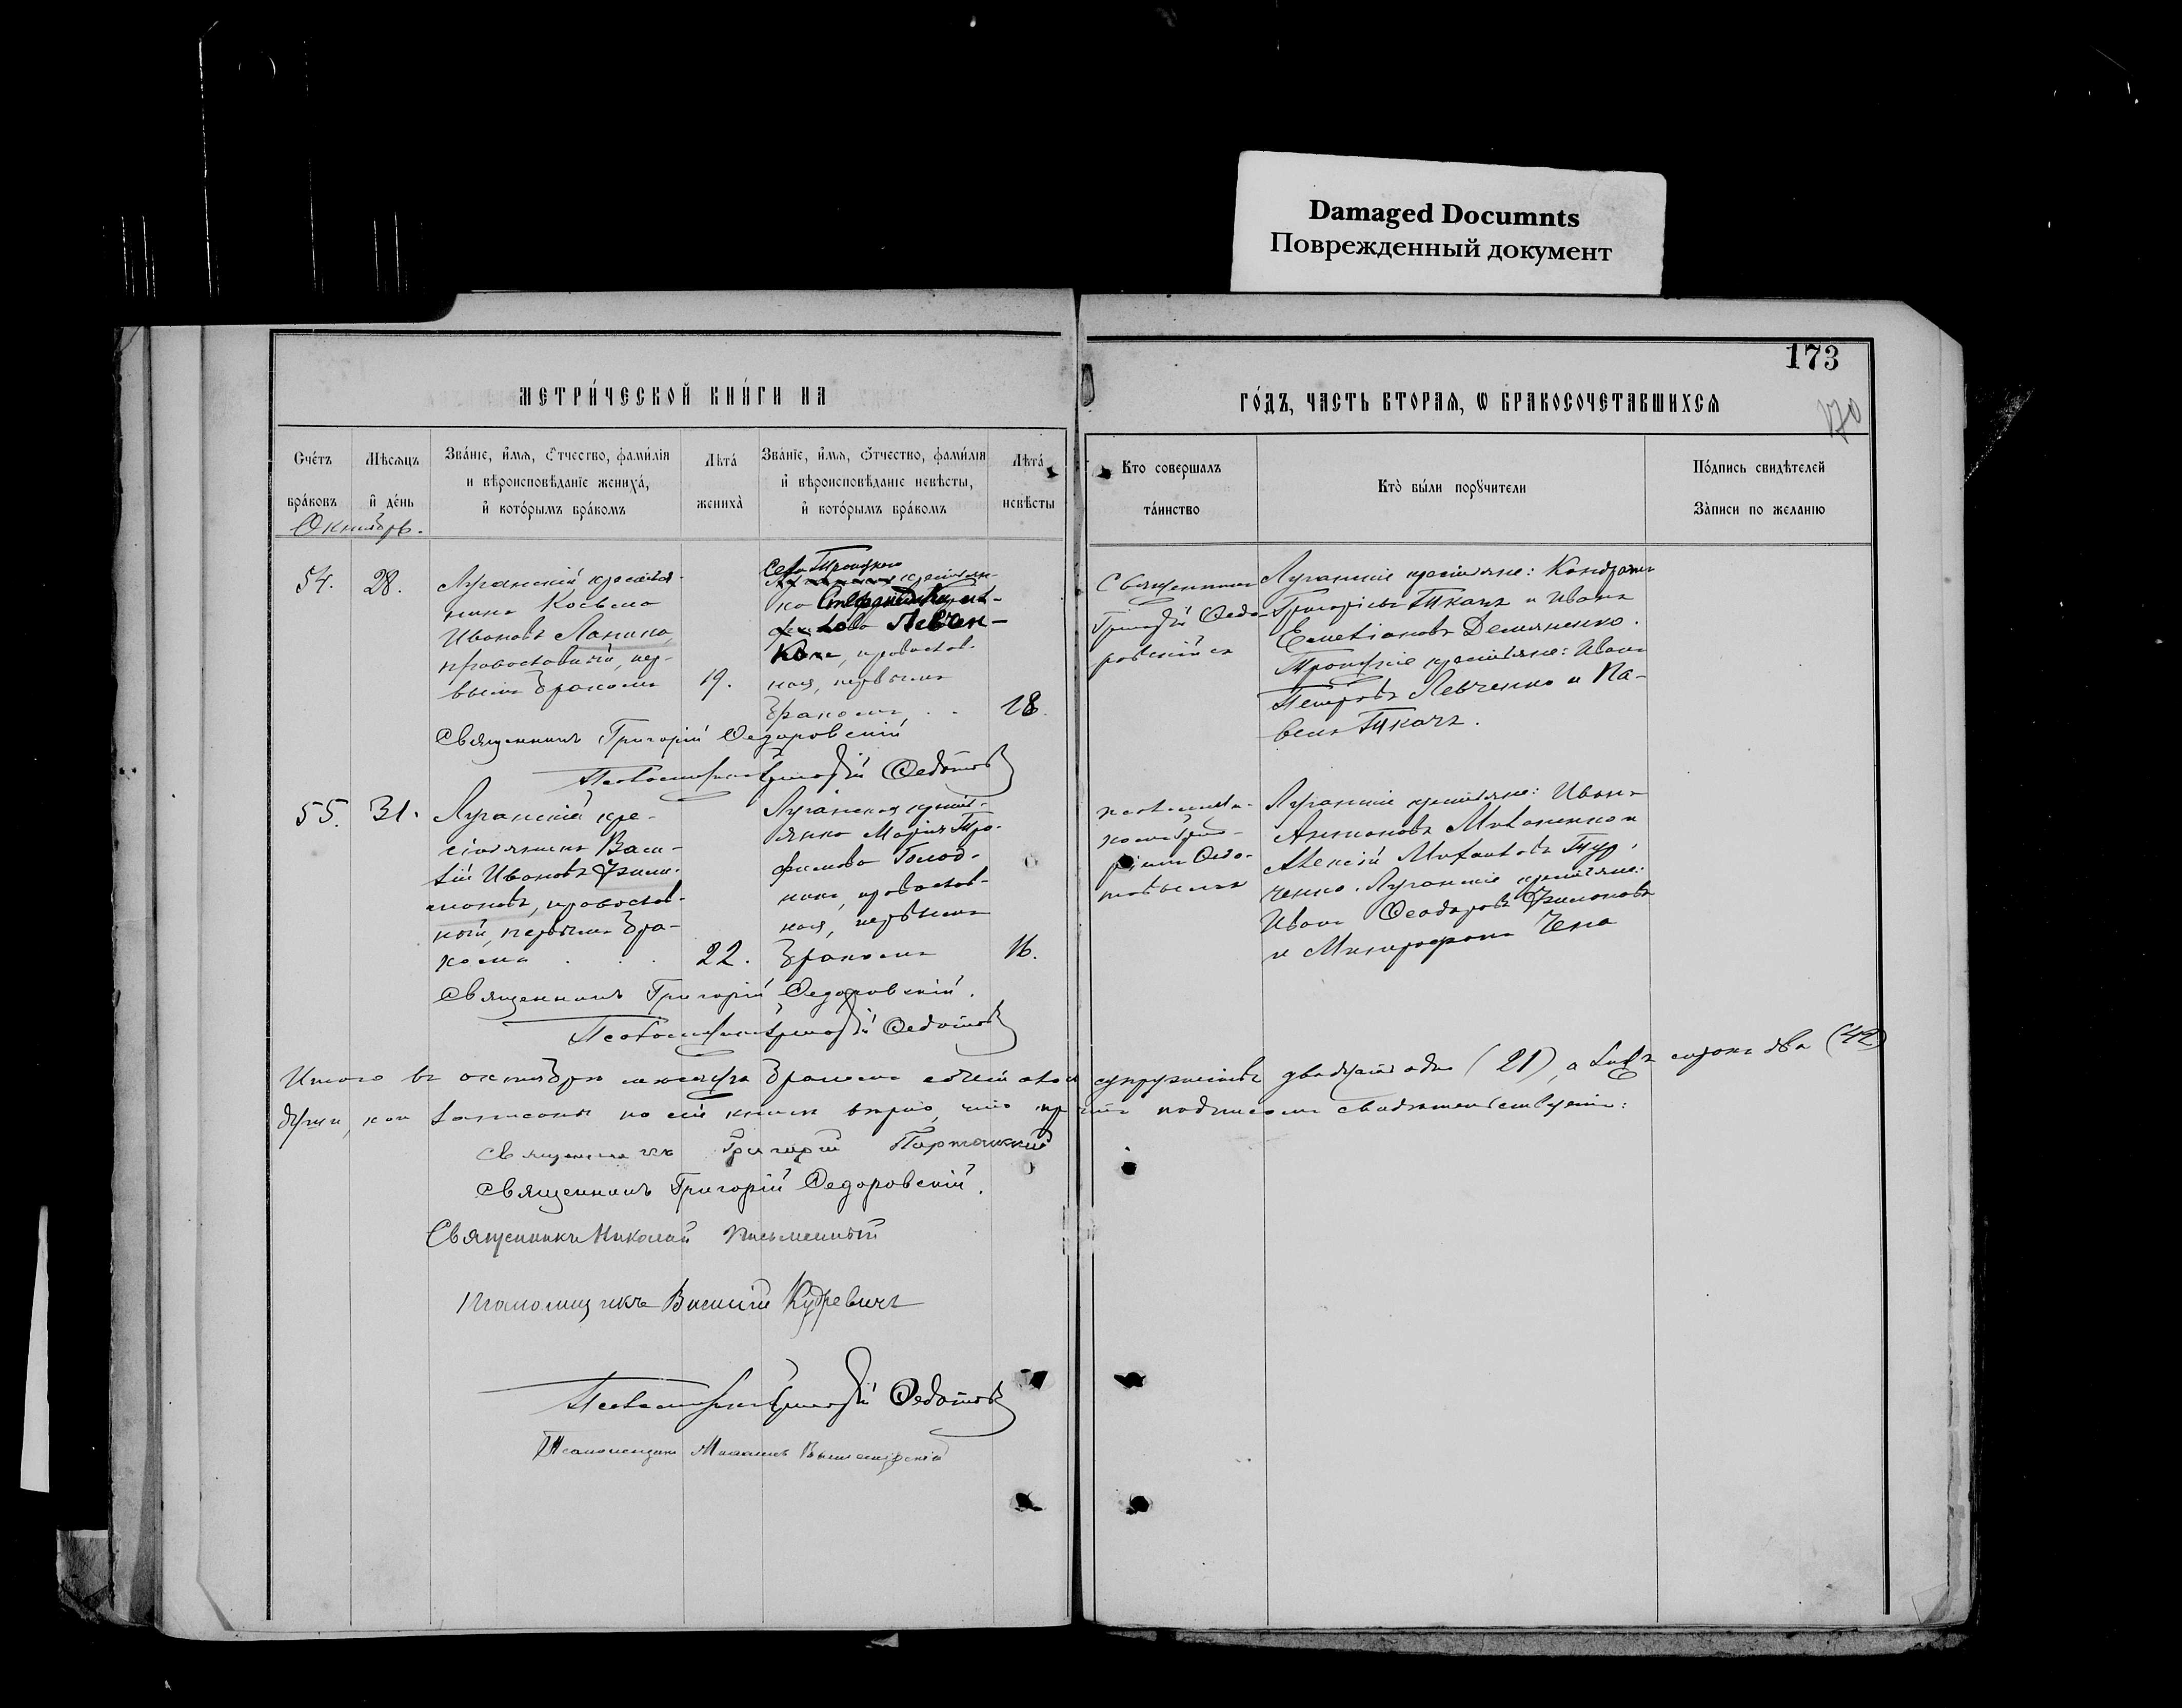 Damaged Documnts
Поврежденный документ
173
170
МЕТРИ́ЧЕСКОЙ КНИ́ГИ НА
ГО́ДЪ, ЧАСТЬ ВТОРАѦ, Ѡ БРАКОСОЧЕТАВШИХСѦ
Счє́тъ бра́ковъ
Мѣсѧцъ и҆ дє́нь
Зва́нїе, и҆́мѧ, ѻ҆́тчество, фами́лїѧ и вѣроисповѣ́данїе жениха́, и҆ кото́рымъ бра́комъ
Лѣта́ жениха̀
Зва́нїе, и҆́мѧ, ѻ҆́тчество, фами́лїѧ и҆ вѣроисповѣ́данїе невѣ́сты, и҆ кото́рымъ бра́комъ
Лѣта́ невѣ́сты
Кто совершалъ та́инство
Кто̀ бы́ли порꙋчи́тели
По́дпись свидѣ́телей За́писи по желанїю
Октябрь.
54.
28.
Луганскій крестья-
нинъ Косьма
Ивановъ Лапина,
православный, пер-
вымъ бракомъ
19.
Села Троицкаго
крестьян-
ка
Левчен-
кова, православ-
ная, первымъ
бракомъ . .
18.
Священникъ
Григорій Ѳедо-
ровскій
Луганскіе крестьяне: Кондратъ
Григорьевъ Ткачъ и Иванъ
Емеліановъ Демяненко.
Троицкіе крестьяне: Иванъ
Петровъ Левченко и Па-
велъ Ткачъ.
Священникъ Григорій Ѳедоровскій
Псаломщикъ Григорій Ѳедотовъ
55.
31.
Луганскій кре-
стьянинъ Васи-
лій Ивановъ Фили-
моновъ, православ-
ный, первымъ бра-
комъ . . .
22.
Луганская кресть-
янка Марія Тро-
фимова Голод-
ная, православ-
ная, первымъ
бракомъ
16.
Луганскіе крестьяне: Иванъ
Антоновъ
Алексій Михаиловъ Тур-
ченко. Луганскіе крестьяне:
Иванъ Ѳеодоровъ Филимоновъ
и Митрофанъ Чепа
Священникъ Григорій Ѳедоровскій.
Псаломщикъ Григорій Ѳедотовъ
Итого въ октябрѣ мѣсяцѣ бракомъ супружествъ двадцать одно (21), а лицъ сорокъ два (42)
души, кои записаны по сей книгѣ вѣрно, что подписомъ свидѣтельствуемъ:
Священникъ Григорій
Священникъ Григорій Ѳедоровскій.
Священникъ Николай Письменный
Псаломщикъ Василій Кудревичъ
Псаломщикъ Григорій Ѳедотовъ
Псаломщикъ